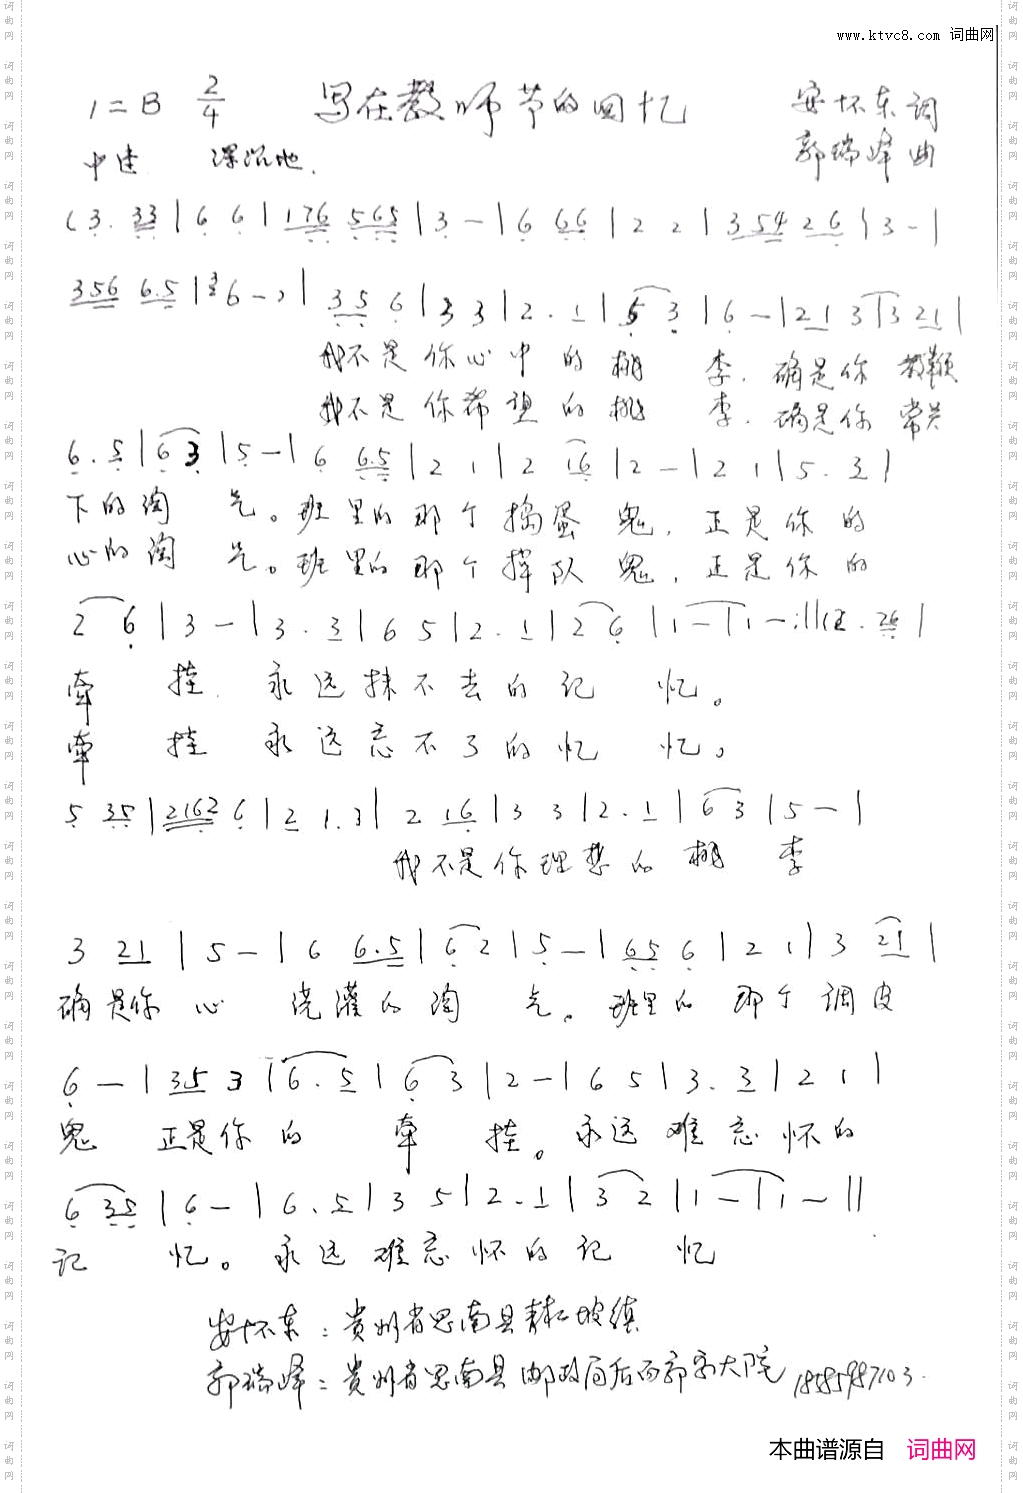 www.ktvc8.com 词曲网
1=B 2/4 写在教师节的回忆 安怀东词
中速 深沉地. 郭瑞峰曲
(3. 33|6 6|176 565|3 -|6 66|2 2|354 26|3 -|
356 6.5|36 -)|35 6|3 3|2. 1|5 3|6 -|21 3|3 21|
我不是你心中的桃 李.确是你教鞭
我不是你希望的桃 李.确是你常关
6. 5|6 3|5 -|6 6.5|2 1|2 16|2 -|2 1|5. 3|
下的淘 气。班里的那个捣蛋鬼,正是你的
心的淘 气。班里的那个掉队鬼,正是你的
2 6|3 -|3. 3|6 5|2. 1|2 6|1 -|1 -:||(2. 26|
牵 挂.永远抹不去的记 忆。
牵 挂 永远忘不了的忆 忆。
5 35|2162 6|2 1.3|2 16|3 3|2. 1|6 3|5 -|
我不是你理想的桃 李
3 21|5 -|6 6.5|6 2|5 -|65 6|2 1|3 21|
确是你心 浇灌的淘 气。班里的那个调皮
6 -|35 3|6. 5|6 3|2 -|6 5|3. 3|2 1|
鬼 正是你的 牵 挂。永远难忘怀的
6 35|6 -|6. 5|3 5|2. 1|3 2|1 -|1 -||
记 忆。永远难忘怀的记 忆
安怀东:贵州省思南县青杠坡镇
郭瑞峰:贵州省思南县邮政局后面郭家大院
本曲谱源自 词曲网